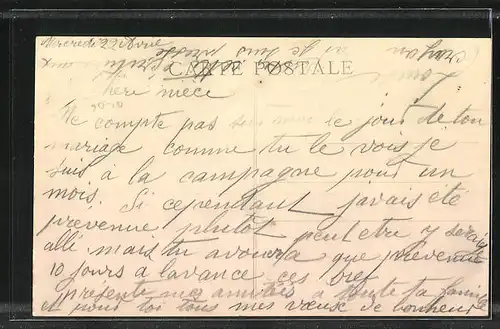 Mercredi 22 Avril
CARTE POSTALE
Chère nièce
Ne compte pas sur moi le jour de ton
mariage comme tu le vois je
suis à la campagne pour un
mois. Si cependant javais été
prevenue plutot peut etre y serais
allé. mais tu avoura que prevenue
10 jours a lavance ces bref
présente mes amitiés à toute ta famille
et pour toi tous mes vœux de bonheur